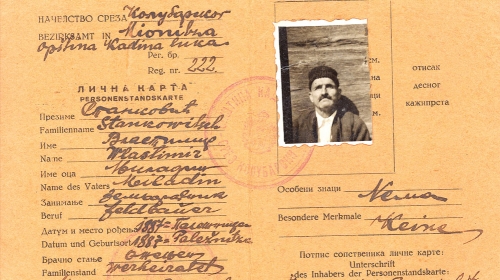 НАЧЕЛСТВО СРЕЗА Колубарског
BEZIRKSAMT IN Mionitza
Opština Kadina Luka
Рег. бр.
Reg. nr. 222.
ЛИЧНА КАРТА
PERSONENSTANDSKARTE
Презиме Станковић
Familienname Stankowitsch
Име Властимир
Name Wlastimir
Име оца Миладин
Name des Vaters Miladin
Занимање земљорадник
Beruf Feldbauer
Датум и место рођења 1887
Datum und Geburtsort 1887
Брачно стање ожењен
Familienstand Verheiratet
отисак
десног
кажипрста
Особени знаци Нема
Besondere Merkmale Keine
Потпис сопственика личне карте:
Unterschrift
des Inhabers der Personenstandskarte: